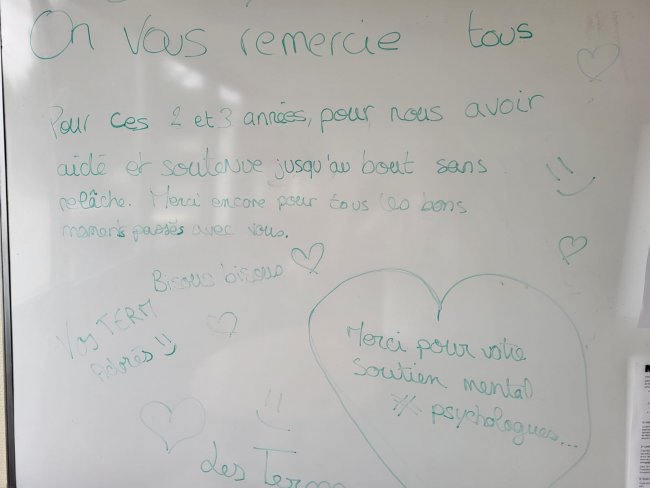 On vous remercie tous
Pour ces 2 et 3 années, pour nous avoir
aidé et soutenue jusqu'au bout sans
relâche. Merci encore pour tous les bons
moments passés avec vous.
Bisous bisous
Vos TERM
Adorés
Merci pour votre
soutien mental
psychologues...
Les Terms